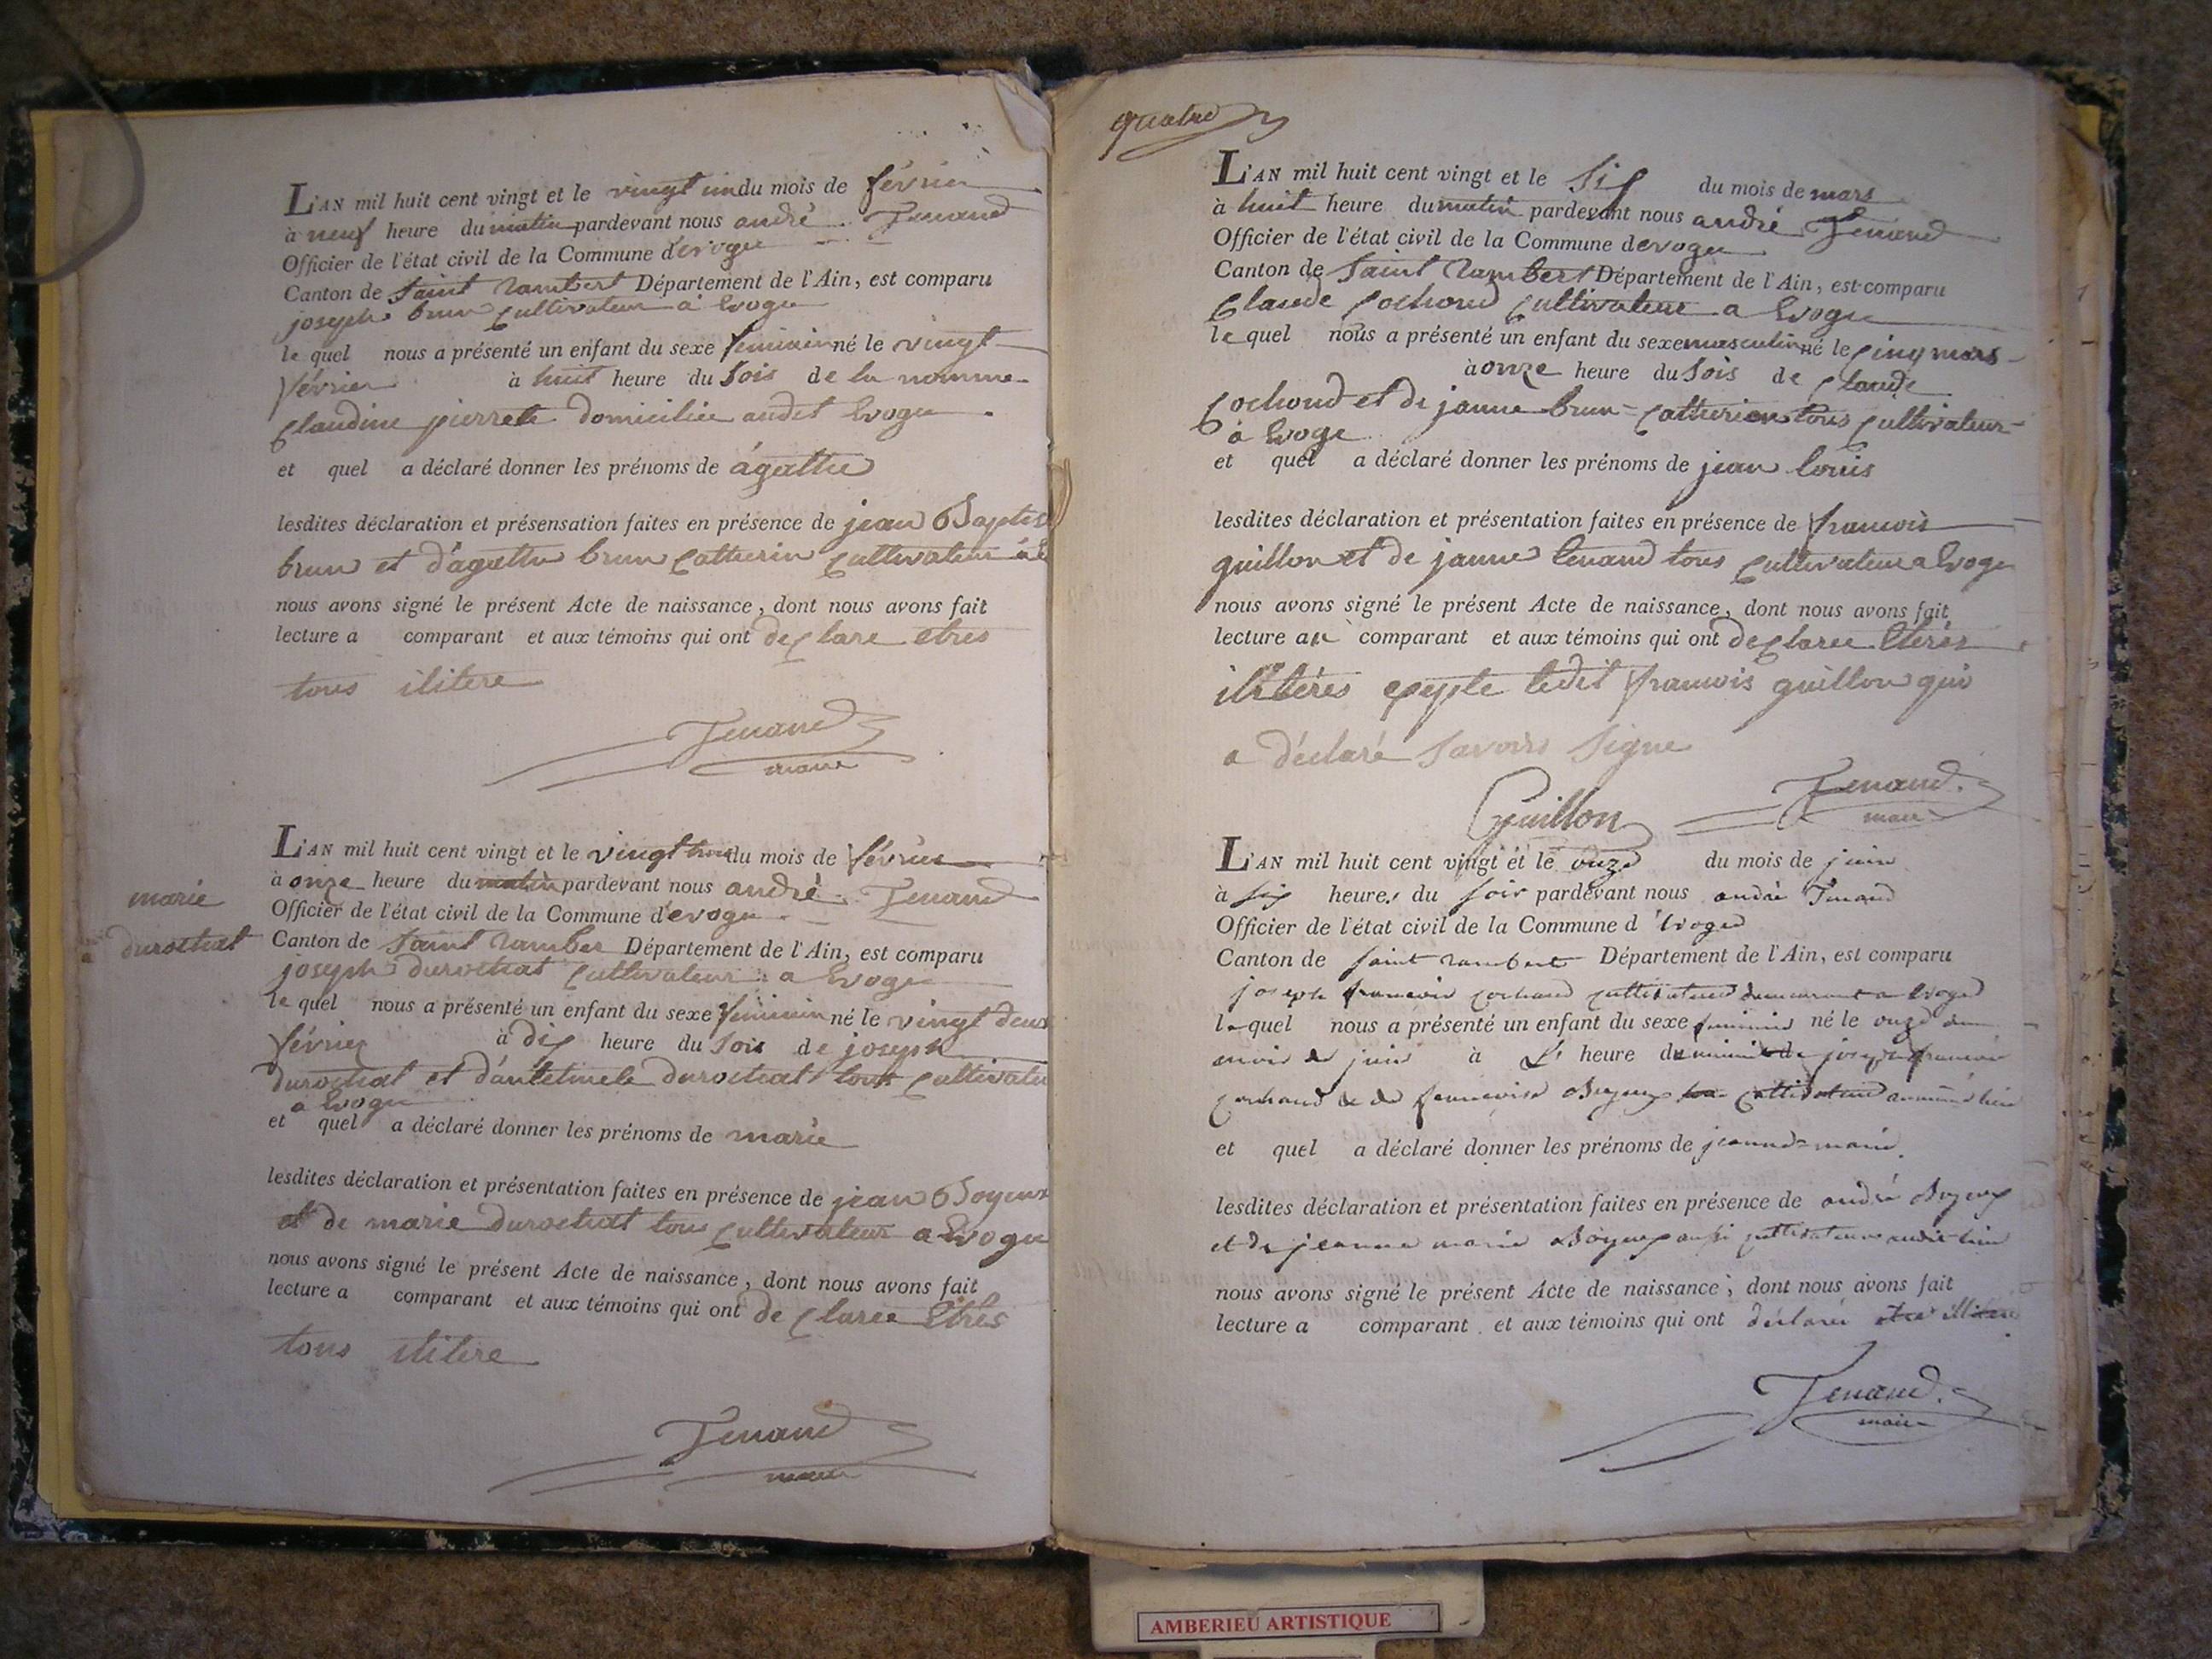 L'AN mil huit cent vingt et le vingt un du mois de février
à neuf heure du matin pardevant nous andré Tenand
Officier de l'état civil de la Commune d'evoge
Canton de Saint rambert Département de l'Ain, est comparu
joseph brun cultivateur à Evoge
le quel nous a présenté un enfant du sexe feminin né le vingt
février à huit heure du Soir de la nommé
claudine pierrete domiciliée audit Evoge
et quel a déclaré donner les prénoms de ágathe
lesdites déclaration et présensation faites en présence de jean Baptis
brun et d'agathe brun catherin cultivateur à E
nous avons signé le présent Acte de naissance, dont nous avons fait
lecture a comparant et aux témoins qui ont declare etres
tous ilitere
Tenand
maire
marie
durochat
L'AN mil huit cent vingt et le vingt trois du mois de février
à onze heure du matin pardevant nous andré Tenand
Officier de l'état civil de la Commune d'evoge
Canton de Saintramber Département de l'Ain, est comparu
joseph durochat cultivateur a Evoge
le quel nous a présenté un enfant du sexe feminin né le vingt deux
février à dix heure du Soir de joseph
durochat et durochat tous cultivateu
a Evoge
et quel a déclaré donner les prénoms de marie
lesdites déclaration et présentation faites en présence de jean Boyeux
et de marie durochat tous cultivateur a Evoge
nous avons signé le présent Acte de naissance, dont nous avons fait
lecture a comparant et aux témoins qui ont declaree Etres
tous ilitere
Tenand
maire
quatre
L'AN mil huit cent vingt et le Six du mois de mars
à huit heure du matin pardevant nous andré Tenand
Officier de l'état civil de la Commune devoge
Canton de Saint rambert Département de l'Ain, est comparu
Claude cochond cultivateur a Evoge
le quel nous a présenté un enfant du sexe masculin né le cinq mars
à onze heure du Soir de claude
cochond et de janne brun=catherin tous cultivateur
à Evoge
et quel a déclaré donner les prénoms de jean louis
lesdites déclaration et présentation faites en présence de francois
guillon et de janne tenand tous cultivateur a Evoge
nous avons signé le présent Acte de naissance, dont nous avons fait
lecture au comparant et aux témoins qui ont declaree
excepte ledit francois guillon qui
a déclaré Savoir Signe
Guillon
Tenand
maire
L'AN mil huit cent vingt et le onze du mois de juin
à six heure, du soir pardevant nous andré Tenand
Officier de l'état civil de la Commune d'Evoge
Canton de saint rambert Département de l'Ain, est comparu
joseph francois cochand cultivateur demeurant a Evoge
le quel nous a présenté un enfant du sexe feminin né le onze du
mois de juin à heure du de joseph francois
cochand & de francoise Boyeux cultivateur
et quel a déclaré donner les prénoms de jeanne=marie
lesdites déclaration et présentation faites en présence de andré Boyeux
et de jeanne marie Boyeux aussi cultivateurs audit lieu
nous avons signé le présent Acte de naissance, dont nous avons fait
lecture a comparant et aux témoins qui ont déclaré etre
Tenand
maire
AMBERIEU ARTISTIQUE